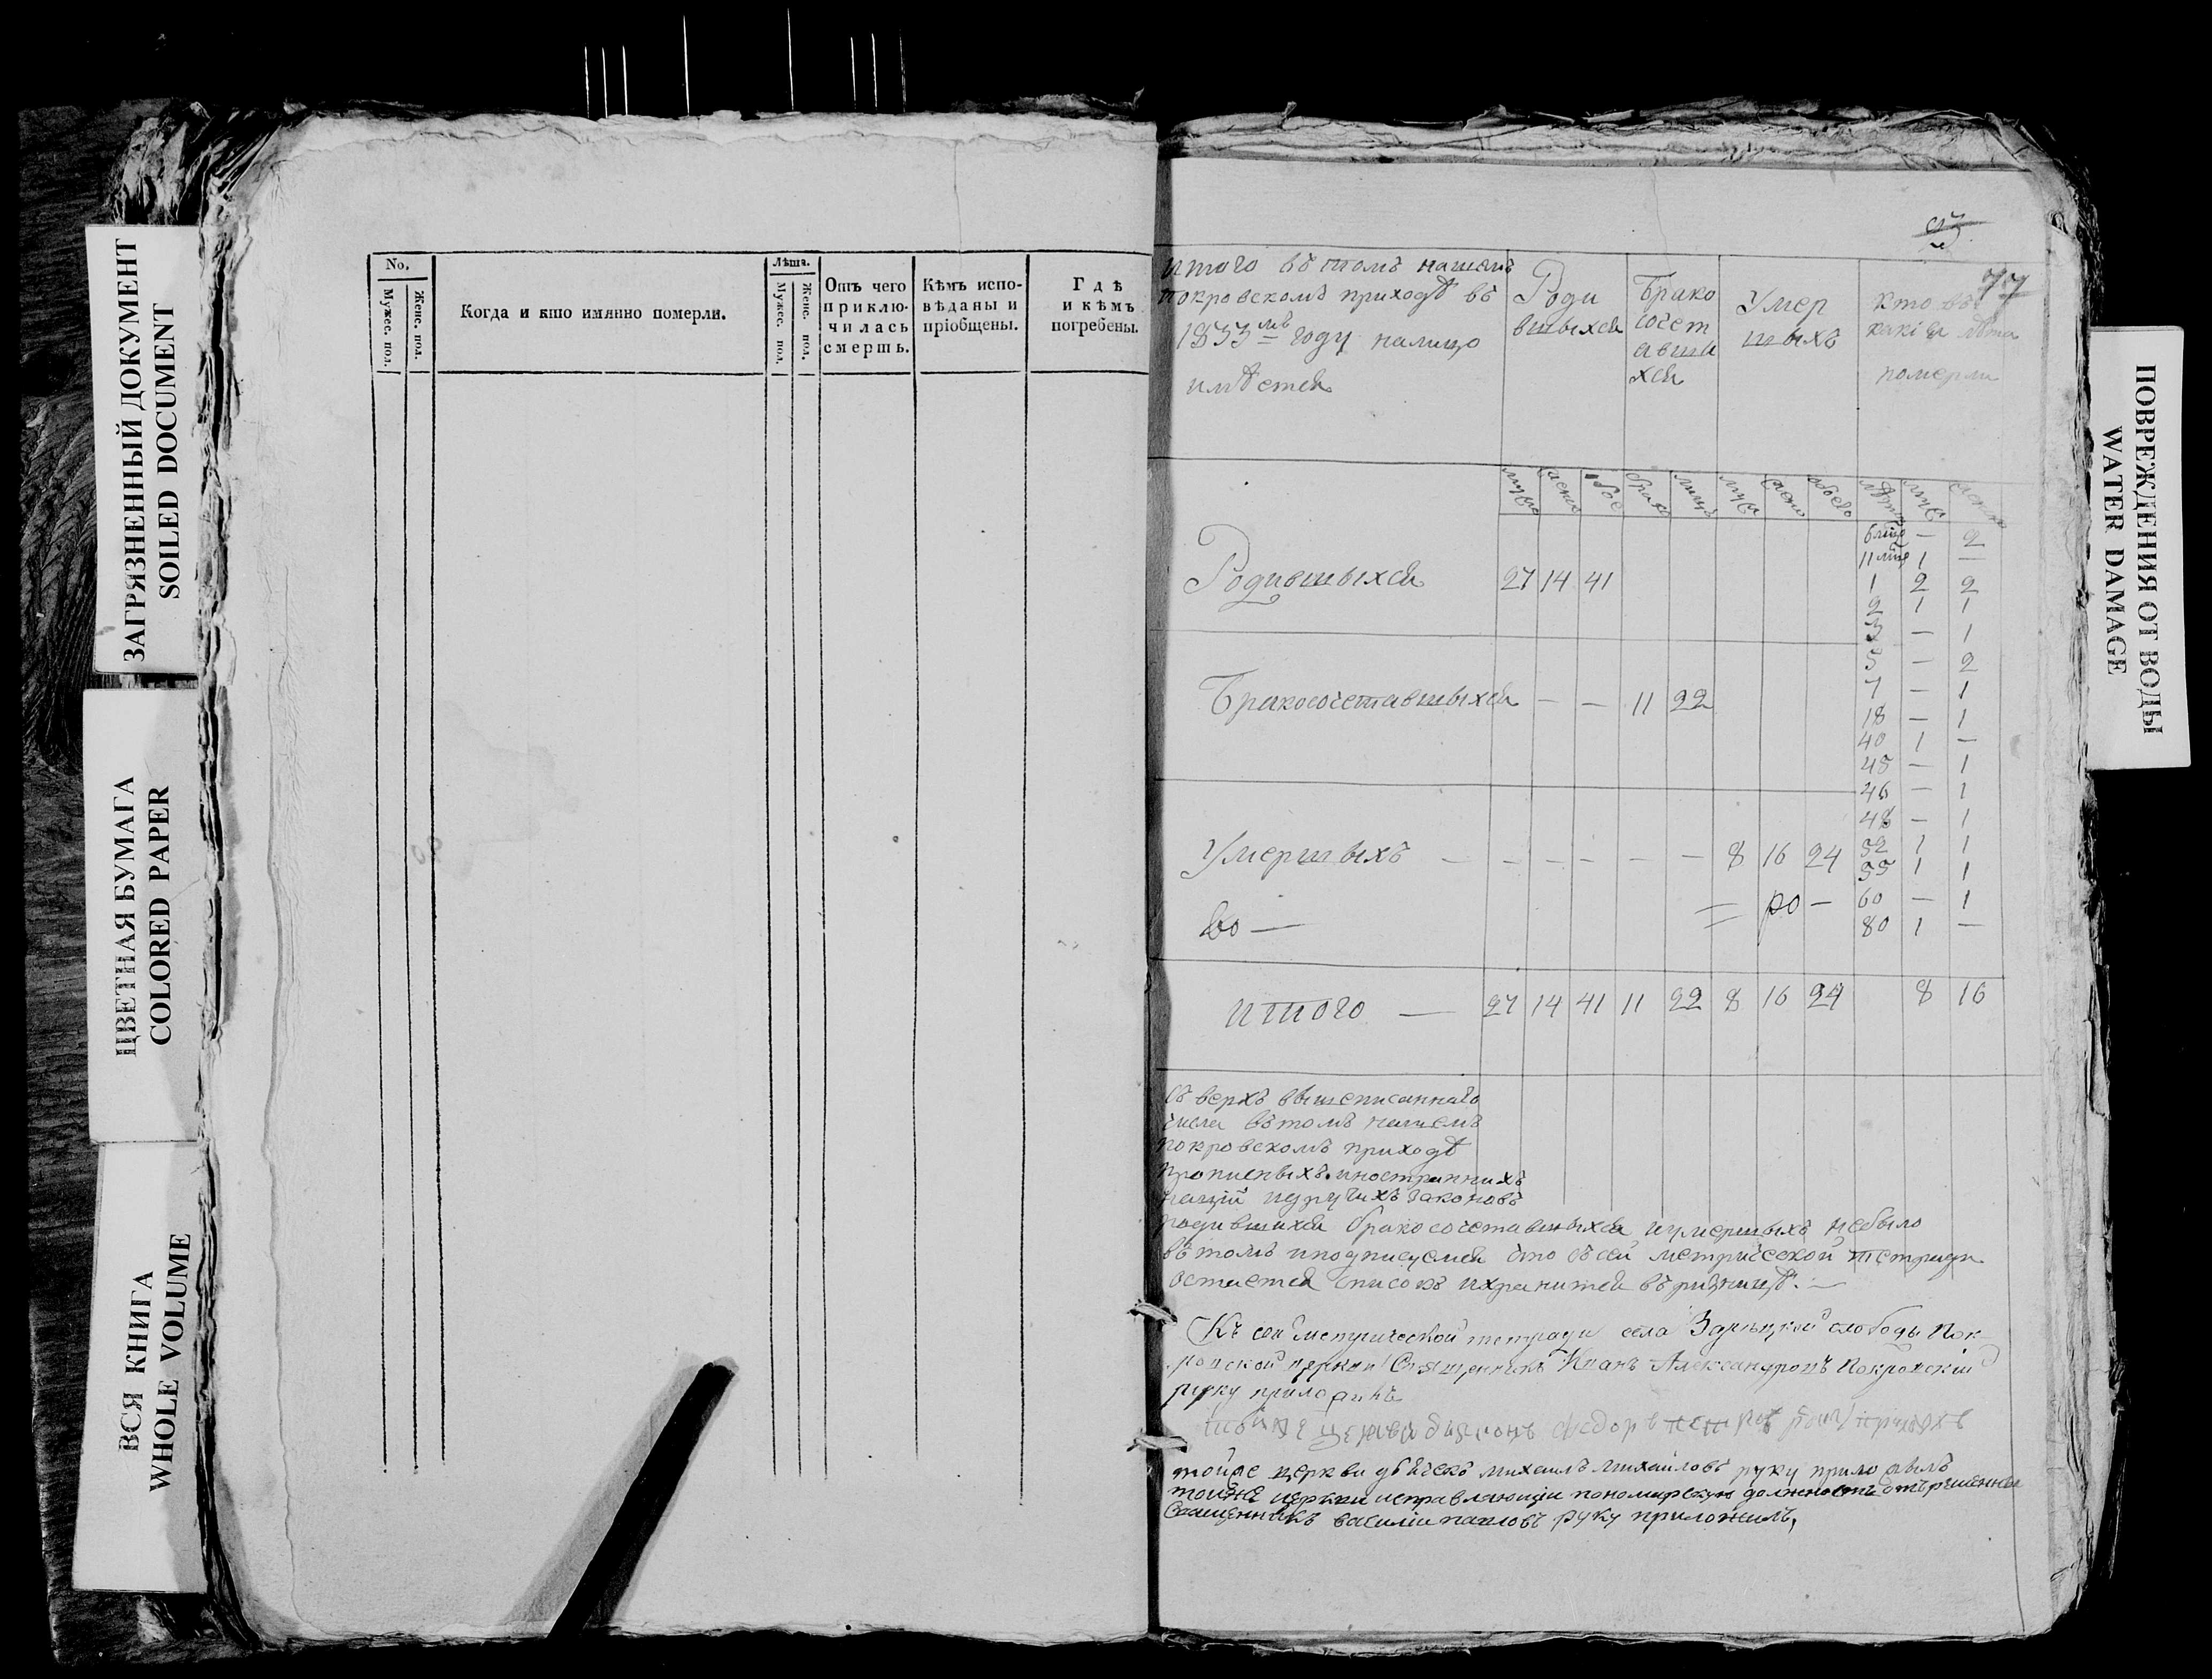 ЗАГРЯЗНЕННЫЙ ДОКУМЕНТ
SOILED DOCUMENT
ЦВЕТНАЯ БУМАГА
COLORED PAPER
ВСЯ КНИГА
WHOLE VOLUME
No.
Мужес. пол.
Женс. пол.
Когда и кто имянно померли.
Лѣта.
Мужес. пол.
Женс. пол.
Отъ чего
приклю-
чилась
смерть.
Кѣмъ испо-
вѣданы и
пріобщены.
Гдѣ
и кѣмъ
погребены.
77
итого въ томъ нашемъ
покровскомъ приходѣ въ
1833мъ году налицо
имѣется
Роди
вшыхся
Брако
сочет
авши
хся
Умер
шыхъ
кто въ
какія лѣта
померли
6 — 2
11 1 —
Родившыхся 27 14 41 1 2 2
2 1 1
3 — 1
5 — 2
7 — 1
Бракосочетавшыхся — — 11 22 18 — 1
40 1 —
45 — 1
46 — 1
48 — 1
Умершыхъ — — — — — — 8 16 24 52 1 1
55 1 1
60 — 1
80 1 —
итого — 27 14 41 11 22 8 16 24 8 16
съ верхъ вышеписаннаго
числа въ томъ нашемъ
покровскомъ приходѣ
прописныхъ иностранныхъ
націй и другихъ законовъ
родившихся бракосочетавшыхся и умершыхъ небыло
въ томъ и подписуемся что съ сей метрической тетради
остается списокъ и хранится въ ризницѣ. —
Къ сей метрической тетради села Зарѣцкой слободы Пок-
ровской церкви Священникъ Иванъ Александровъ Покровскій
руку приложилъ
тойже церкви діаконъ федоръ петровъ руку
тойже церкви дьячекъ михаилъ михайловъ руку приложилъ
тойже церкви исправляющіи пономарскую должность отъ решенной
священникъ василіи павловъ руку приложилъ,
ПОВРЕЖДЕНИЯ ОТ ВОДЫ
WATER DAMAGE